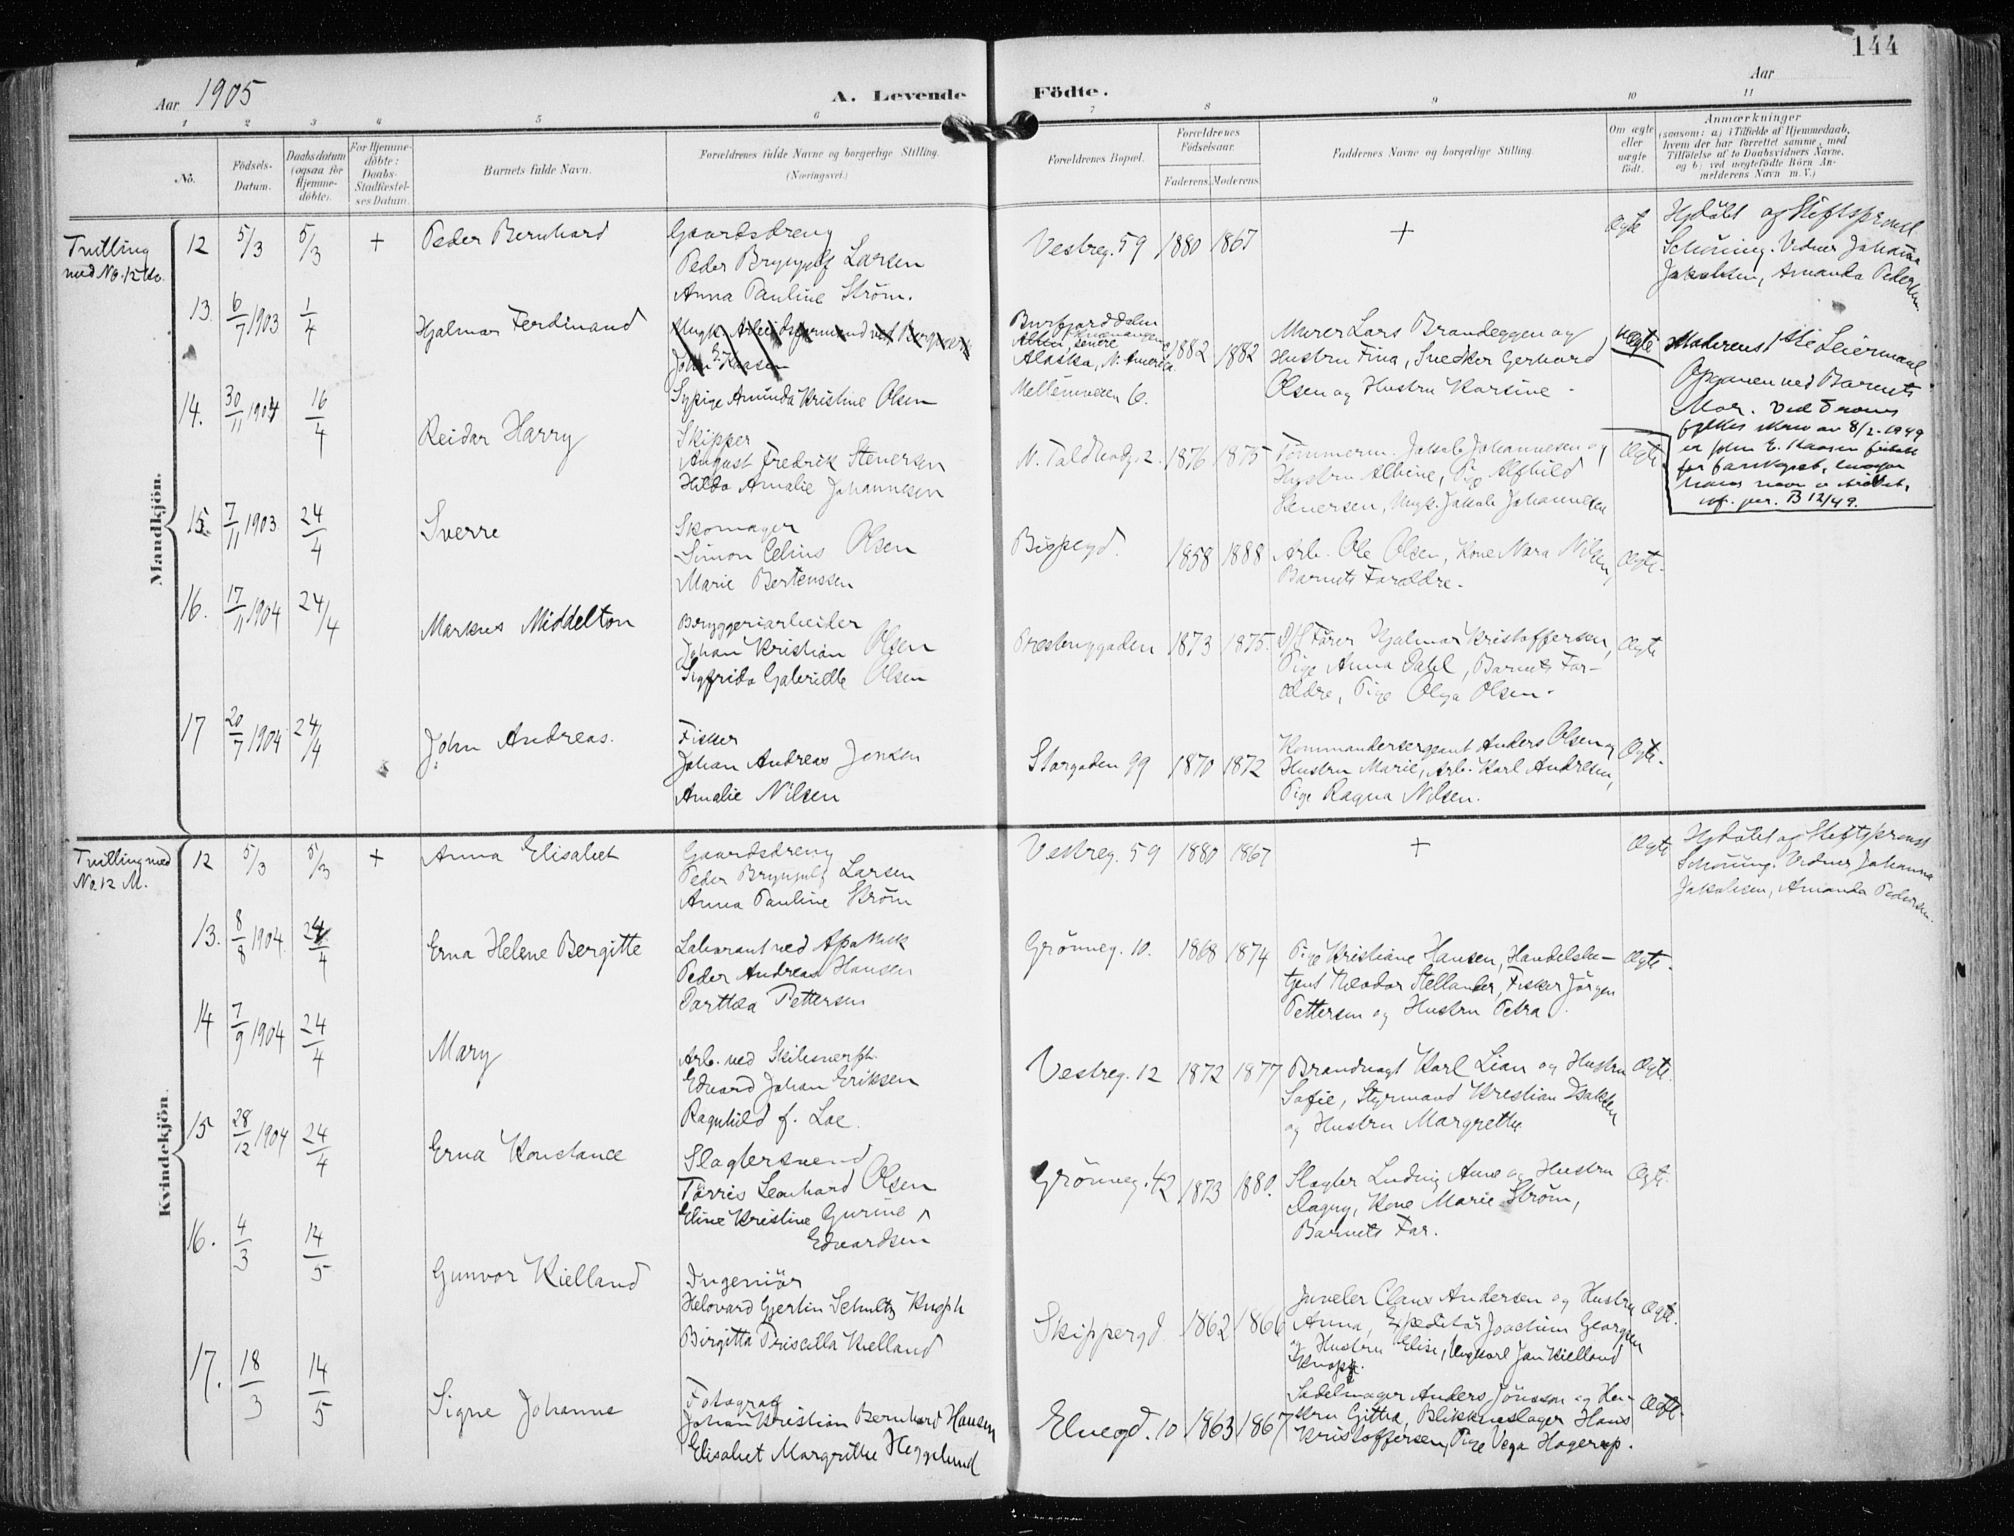 144
Aar 1905
A. Levende Födte.
Aar
1 2 3 4 5 6 7 8 9 10 11
No.
Födsels-Datum.
Daabsdatum (ogsaa for Hjemme-döbte).
For Hjemme-döbte: Daabs-Stadfæstel-ses Datum.
Barnets fulde Navn.
Forældrenes fulde Navne og borgerlige Stilling.
(Næringsvei.)
Forældrenes Bopæl.
Forældrenes Födselsaar.
Faderens. Moderens.
Faddernes Navne og borgerlige Stilling.
Om ægte eller uægte født.
Anmærkninger
(saasom: a) i Tilfælde af Hjemmedaab,
hvem der har forrettet samme, med
Tilföielse af to Daabsvidners Navne,
og b) ved uægtefødte Börn An-
melderens Navn m. V.)
Mandkjön.
Tvilling
med No. 12 Kv.
12 5/3 5/3 + Peder Bernhard
Gaardsdreng
Peder Brynjulf Larsen
Anna Pauline Strøm.
Vestreg. 59 1880 1867 + Ægte
Hjdöbt og Stiftsprovst
Schöning. Vidner Johanna
Jakobsen, Amanda Pedersen
13. 6/7 1903 1/4 Hjalmar Ferdinand
Ungk. Arbeidsformand ved
John E. Kaasen
Sypige Amanda Kristine Olsen
Burfjorddalen
Alten, senere
Alaska, N. Amerika.
Mellemveien 6.
1882 1882
Murer Lars Brandeggen og
Hustru Fina, Snedker Gerhard
Olsen og Hustru Karsine.
Uægte
Moderens 1ste Leiermaal
Opgaven ved Barnets
Mor. Ved Troms
fylkes skriv av 8/2-1949
er John E. Kaasen
for farskapet,
hans navn er
jfr. jnr. B 12/49.
14. 30/11 1904 16/4 Reidar Harry
Skipper
August Fredrik Stenersen
Hilda Amalie Johannesen
N. Toldbodg. 2. 1876 1875
Tømmerm. Jakob Johannesen og
Hustru Albine, Pige Alfhild
Stenersen, Ungk. Jakob Johannesen
Ægte
15. 7/11 1903 24/4 Sverre
Skomager
Simon Celius Olsen
Marie Bertenssen
Bispegd. 1858 1888
Arb. Ole Olsen, Kone Nara Nilsen,
Barnets Forældre.
Ægte.
16. 17/11 1904 24/4 Markus Middelton
Bryggeriarbeider
Johan Kristian Olsen
Sigfrida Gabrielle Olsen
Prestenggaden 1873 1875.
D/S Fører Hjalmar Kristoffersen,
Pige Anna Dahl, Barnets For-
ældre, Pige Olga Olsen.
Ægte
17 20/7 1904 24/4 John Andreas.
Fisker
Johan Andreas Jensen
Amalie Nilsen
Storgaden 99 1870 1872
Kommandersergeant Anders Olsen og
Hustru Marie, Arb. Karl Andresen,
Pige Ragna Nilsen.
Ægte.
Kvindekjön.
Tvilling med
No. 12 M.
12 5/3 5/3 + Anna Elisabet
Gaardsdreng
Peder Brynjulf Larsen
Anna Pauline Strøm
Vestreg. 59 1880 1867 + Ægte
Hjdöbt af Stiftsprovst
Schöning. Vidner Johanna
Jakobsen, Amanda Pedersen.
13. 8/8 1904 24/4 Erna Helene Bergitte
Laborant ved Apothek
Peder Andreas Hansen
Darthea Pettersen
Grønneg. 10. 1868 1874
Pige Kristiane Hansen, Handelsbe-
tjent Theodor Stellander, Fisker Jörgen
Pettersen og Hustru Petra.
Ægte.
14 7/9 1904 24/4 Mary
Arb. ved Skibsverft.
Edvard Johan Eriksen
Ragnhild f. Loe.
Vestreg. 12 1872 1877
Brandvagt Karl Lian og Hustru
Sofie, Styrmand Kristian Isaksen
og Hustru Margrethe
Ægte.
15 28/12 1904 24/4 Erna Konstance
Slagtersvend
Tørris Leonhard Olsen
Eline Kristine Gurine
Edvardsen
Grønneg. 42 1873 1880.
Slagter Ludvig Aune og Hustru
Dagny, Kone Marie Strøm,
Barnets Far.
Ægte.
16. 4/3 14/5 Gunvor Kielland
Ingeniör
Gjertin Schultz
Birgitta Priscilla Kielland
Skippergd. 1862 1866
Juveler Claus Andersen og Hustru
Anna, Expeditör Joachim Georg
og Hustru Elise, Ungkarl Jan Kielland
Knoph.
Ægte.
17. 18/3 14/5 Signe Johanne
Fotograf
Johan Kristian Bernhard Hansen
Elisabet Margrethe Heggelund
Elvegd. 10 1863 1867
Sadelmager Anders Jönsson og Hu-
stru Gjitha, Blikkenslager Hans
Kristoffersen, Pige Vega Hagerup.
Ægte.